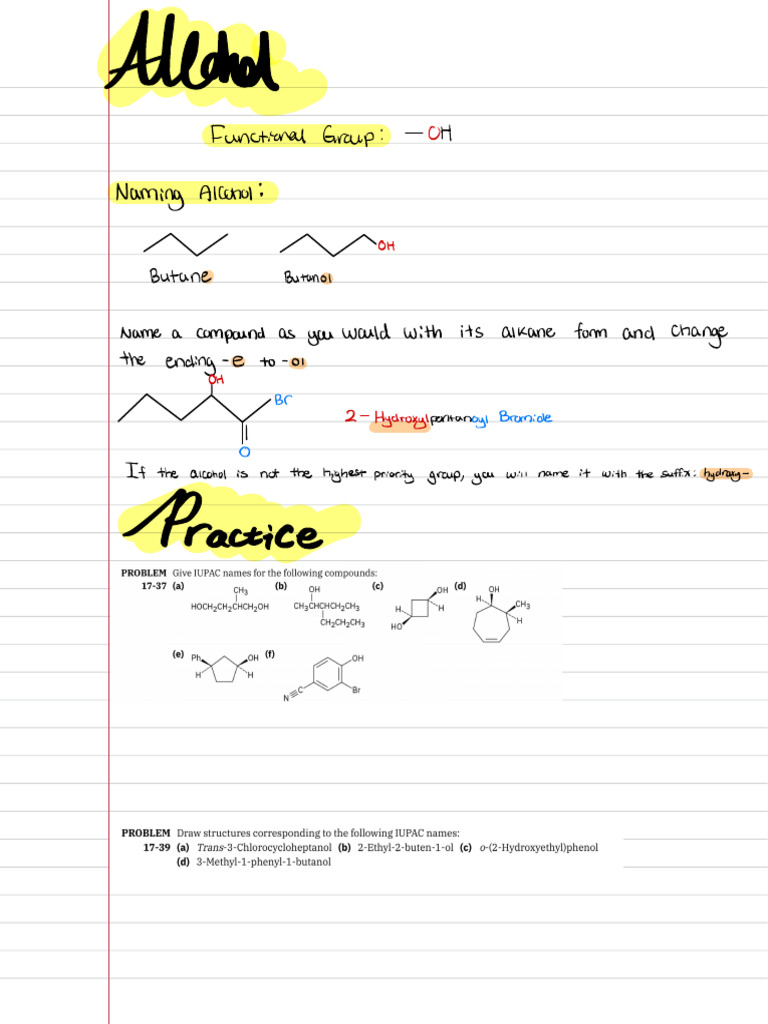 Alcohol
Functional Group: —OH
Naming Alcohol:
OH
Butane Butanol
Name a compound as you would with its alkane form and change
the ending -e to -ol
OH
Br
2-Hydroxylpentanoyl Bromide
O
If the alcohol is not the highest priority group, you will name it with the suffix: hydroxy-
Practice
PROBLEM Give IUPAC names for the following compounds:
17-37 (a) (b) (c) (d)
CH₃
HOCH₂CH₂CHCH₂OH
OH
CH₃CHCHCH₂CH₃
CH₂CH₂CH₃
OH
H
H
HO
OH
H
CH₃
H
(e) (f)
Ph
OH
H
H
OH
Br
N≡C
PROBLEM Draw structures corresponding to the following IUPAC names:
17-39 (a) Trans-3-Chlorocycloheptanol (b) 2-Ethyl-2-buten-1-ol (c) o-(2-Hydroxyethyl)phenol
(d) 3-Methyl-1-phenyl-1-butanol